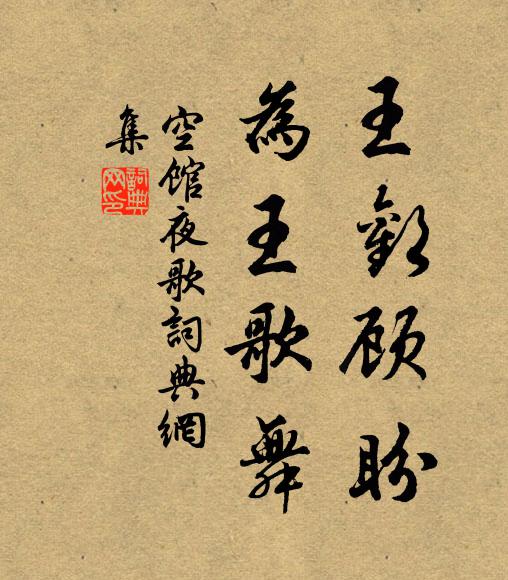 王歡顾盼
為王歌舞
空館夜歌詞典網
集
詞典
网印